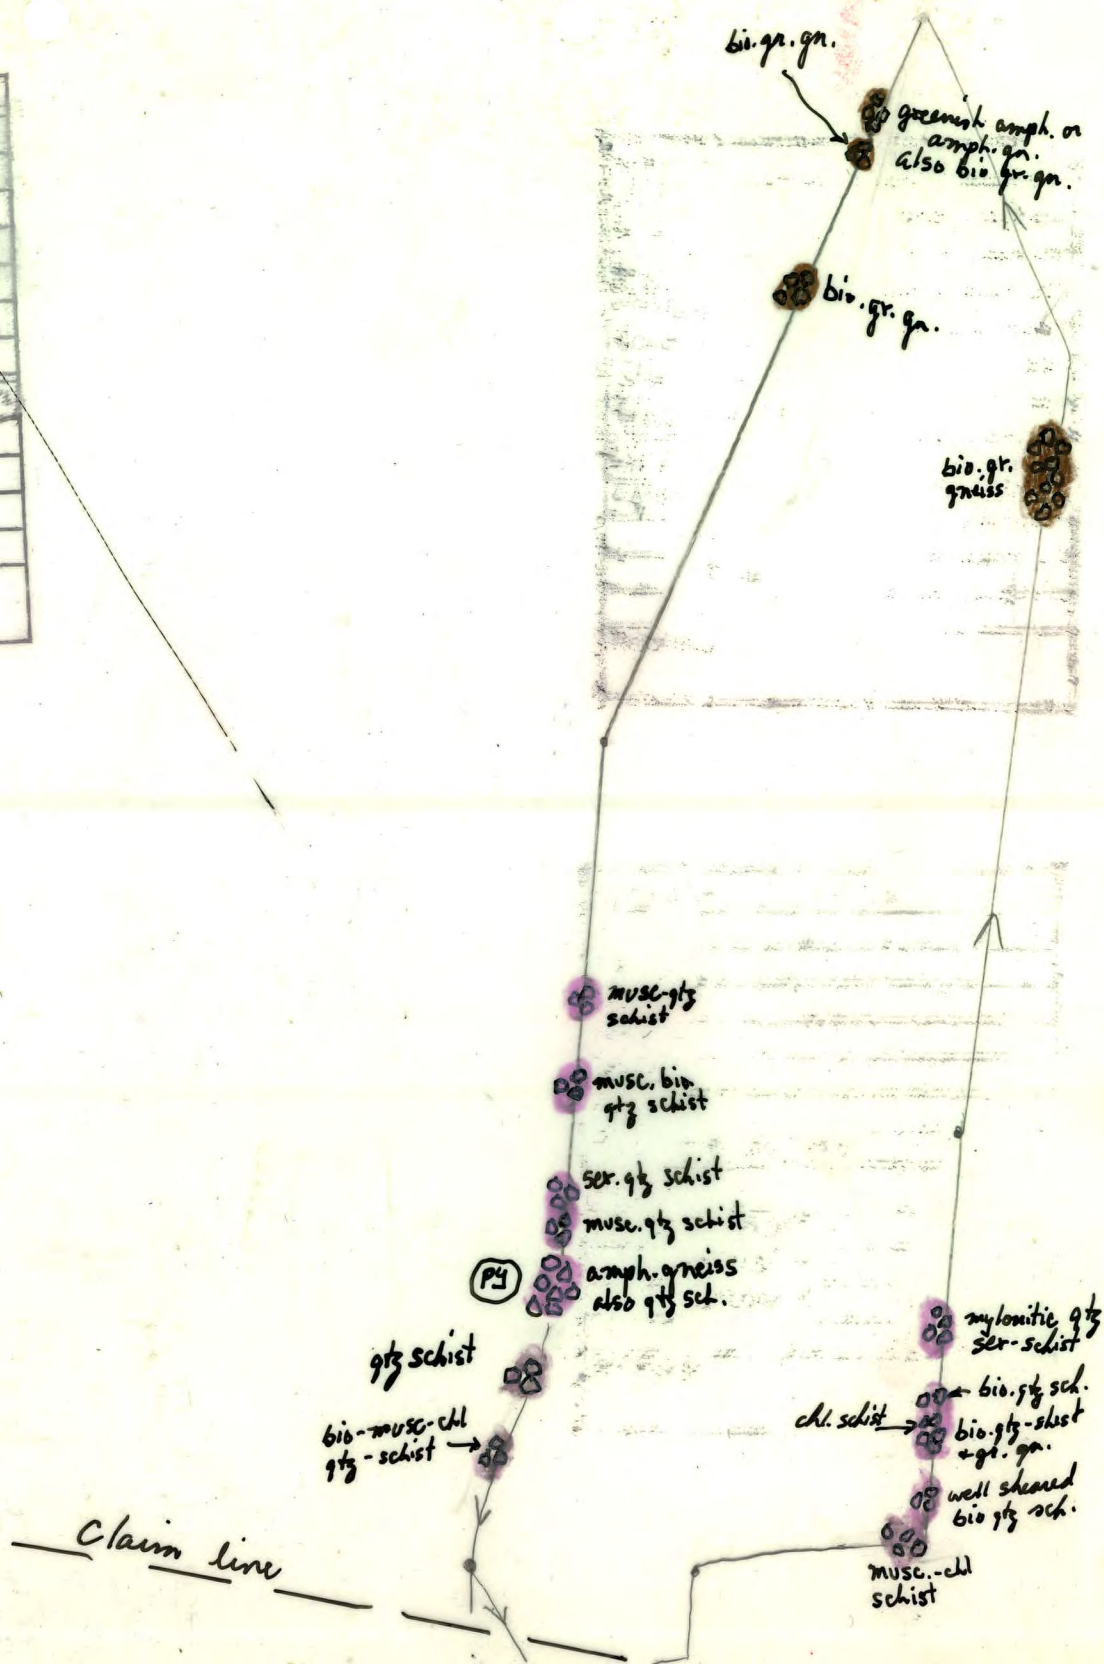 bio.gr.gn.
greenish amph. or
amph. gn.
also bio gr. gn.
bio.gr.gn.
bio.gr.
gneiss
musc-qtz
schist
musc. bio
qtz schist
ser. qtz schist
musc. qtz schist
PY
amph. gneiss
also qtz sch.
qtz schist
bio-musc-chl
qtz-schist
mylonitic qtz
ser-schist
bio.qtz sch.
chl. schist
bio.qtz-shist
+gr. gn.
well sheared
bio qtz sch.
musc.-chl
schist
Claim line